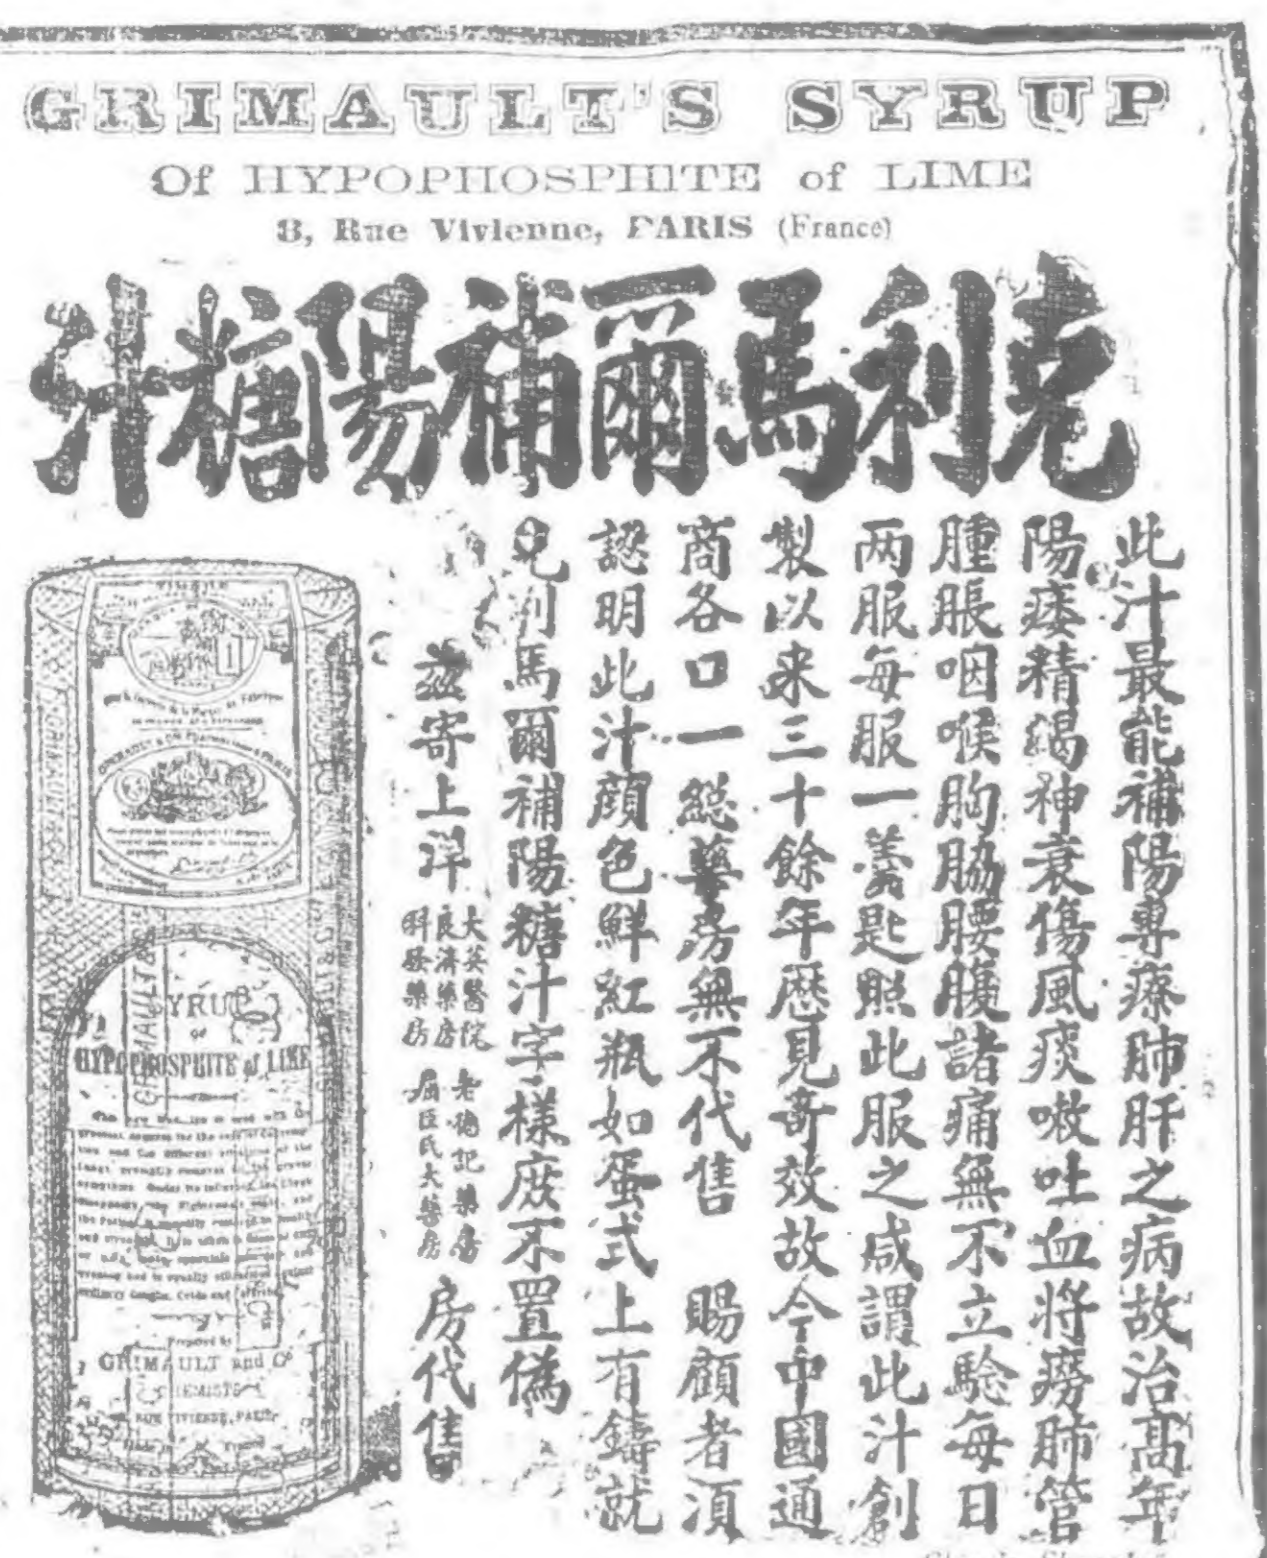 GRIMAULT'S SYRUP
Of HYPOPHOSPHITE of LIME
8, Rue Vivienne, PARIS (France)
克利馬爾補陽糖汁
此汁最能補陽專療肺肝之病故治高年
陽痿精竭神衰傷風痰嗽吐血將癆肺管
腫脹咽喉胸脇腰腹諸痛無不立驗每日
两服每服一羹匙照此服之咸謂此汁創
製以来三十餘年歷見奇效故今中國通
商各口一總藥房無不代售 賜顧者湏
認明此汁顔色鮮紅瓶如蛋式上有鑄就
克利馬爾補陽糖汁字樣庶不置偽
兹寄上洋
大英醫院
良濟藥房
科發藥房
老德記藥房
屈臣氏大藥房
房代售
SYRUP
OF
HYPOPHOSPHITE of LIME
Prepared by
GRIMAULT and Co
CHEMISTS
RUE VIVIENNE, PARIS